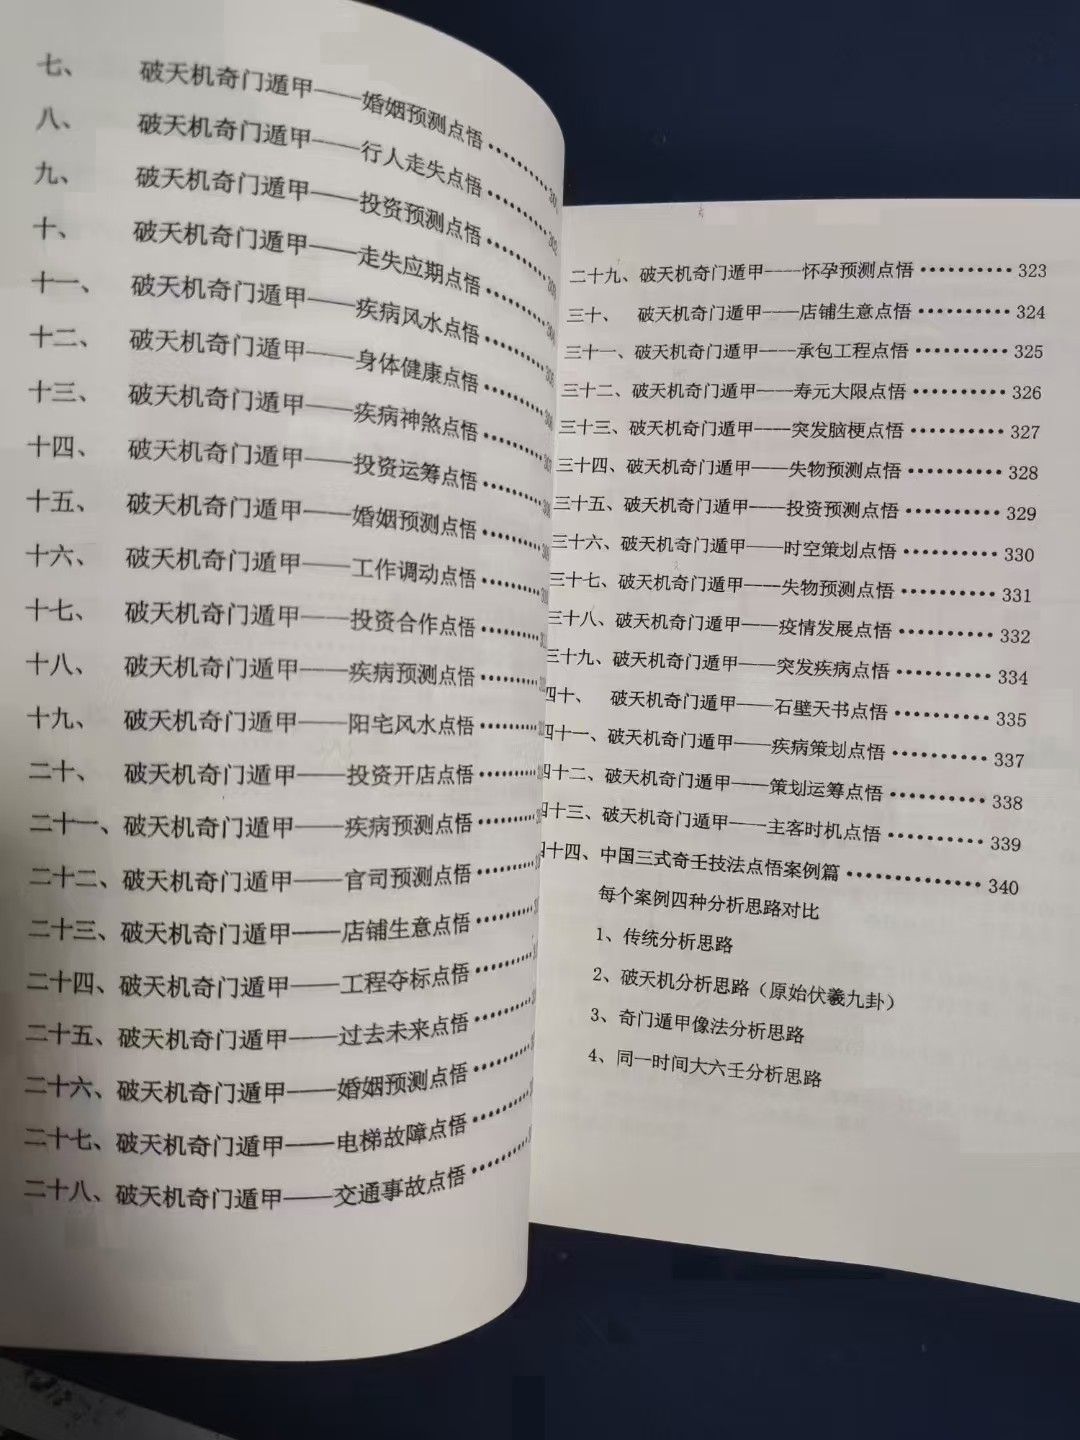 七、 破天机奇门遁甲——婚姻预测点悟
八、 破天机奇门遁甲——行人走失点悟 302
九、 破天机奇门遁甲——投资预测点悟 303
十、 破天机奇门遁甲——走失应期点悟 304
十一、 破天机奇门遁甲——疾病风水点悟 305
十二、 破天机奇门遁甲——身体健康点悟 306
十三、 破天机奇门遁甲——疾病神煞点悟 307
十四、 破天机奇门遁甲——投资运筹点悟
十五、 破天机奇门遁甲——婚姻预测点悟
十六、 破天机奇门遁甲——工作调动点悟
十七、 破天机奇门遁甲——投资合作点悟
十八、 破天机奇门遁甲——疾病预测点悟
十九、 破天机奇门遁甲——阳宅风水点悟
二十、 破天机奇门遁甲——投资开店点悟
二十一、破天机奇门遁甲——疾病预测点悟
二十二、破天机奇门遁甲——官司预测点悟
二十三、破天机奇门遁甲——店铺生意点悟
二十四、破天机奇门遁甲——工程夺标点悟
二十五、破天机奇门遁甲——过去未来点悟
二十六、破天机奇门遁甲——婚姻预测点悟
二十七、破天机奇门遁甲——电梯故障点悟
二十八、破天机奇门遁甲——交通事故点悟
二十九、破天机奇门遁甲----怀孕预测点悟 323
三十、 破天机奇门遁甲——店铺生意点悟 324
三十一、破天机奇门遁甲——承包工程点悟 325
三十二、破天机奇门遁甲——寿元大限点悟 326
三十三、破天机奇门遁甲——突发脑梗点悟 327
三十四、破天机奇门遁甲——失物预测点悟 328
三十五、破天机奇门遁甲——投资预测点悟 329
三十六、破天机奇门遁甲——时空策划点悟 330
三十七、破天机奇门遁甲----失物预测点悟 331
三十八、破天机奇门遁甲——疫情发展点悟 332
三十九、破天机奇门遁甲——突发疾病点悟 334
四十、 破天机奇门遁甲——石壁天书点悟 335
四十一、破天机奇门遁甲——疾病策划点悟 337
四十二、破天机奇门遁甲——策划运筹点悟 338
四十三、破天机奇门遁甲——主客时机点悟 339
四十四、中国三式奇壬技法点悟案例篇 340
每个案例四种分析思路对比
1、传统分析思路
2、破天机分析思路（原始伏羲九卦）
3、奇门遁甲像法分析思路
4、同一时间大六壬分析思路